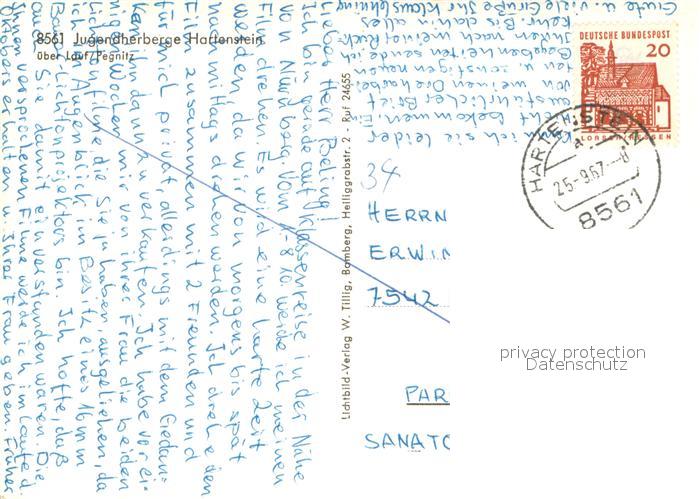 8561 Jugendherberge Hartenstein
über Lauf/Pegnitz
Lieber Herr Beling!
Ich bin gerade auf Klassenreise in der Nähe
von Nürnberg. Vom 1.-8.10. werde ich meinen
Film drehen. Es wird eine harte Zeit
werden, da wir von morgens bis spät
nachmittags drehen werden. Ich drehe den
Film zusammen mit 2 Freunden und
für mich privat, allerdings mit dem Gedan-
ken ihn dann zu verkaufen. Ich habe vor ei-
nigen Wochen mir von ihrer Frau die beiden
Filme, die Sie ja haben, ausgeliehen, da
ich im Augenblick im Besitz eines 16mm
Lichttonprojektors bin. Ich hoffe, daß
Sie damit einverstanden waren. Die
Ihnen versprochenen Filme werde ich im Laufe d.
Oktobers erhalten u. Ihrer Frau geben. Früher
kann ich sie leider
nicht bekommen. Ein
ausführlicher Brief
von meinen Dreharbei-
ten u. sonstigen neuen
Begebenheiten sende ich
Ihnen nach meiner Rück-
kehr. Bis dahin alles
Gute u. viele Grüße Ihr Klaus
Lichtbild-Verlag W. Tillig, Bamberg, Heiliggrabstr. 2 - Ruf 24655
DEUTSCHE BUNDESPOST
20
HARTENSTEIN
a
25.-9.67.--8
8561
34
HERRN
ERWIN
7542
PAR
SANATO
privacy protection
Datenschutz